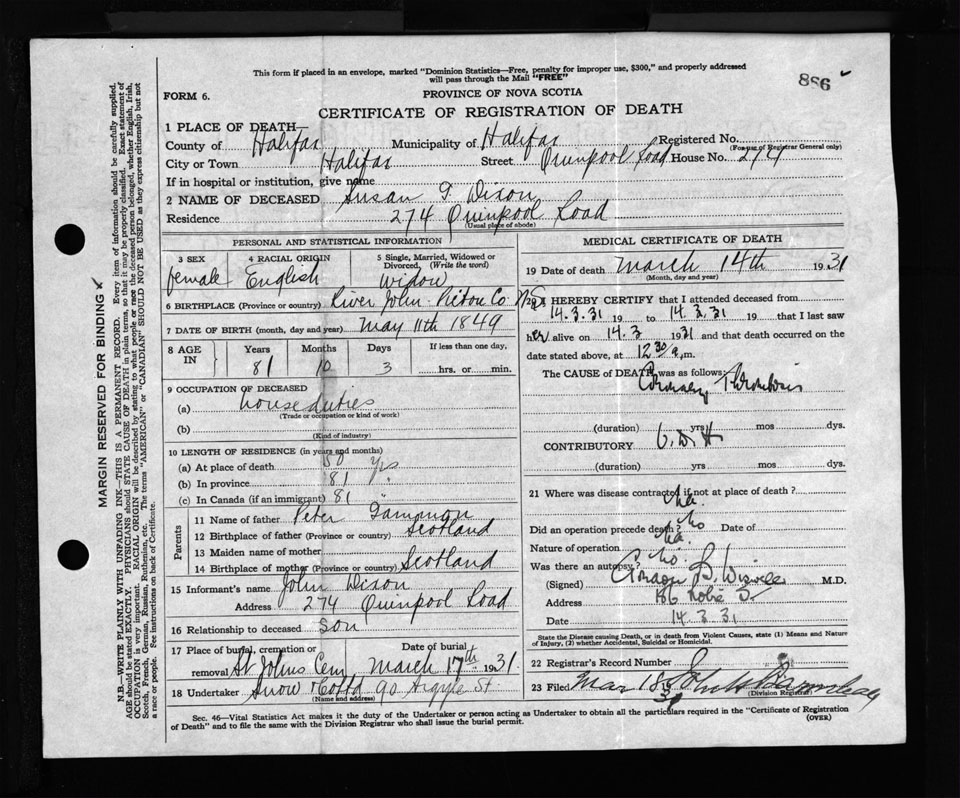 This form if placed in an envelope, marked "Dominion Statistics—Free, penalty for improper use, $300," and properly addressed
will pass through the Mail "FREE"
886
FORM 6.
PROVINCE OF NOVA SCOTIA
CERTIFICATE OF REGISTRATION OF DEATH
1 PLACE OF DEATH—
County of Halifax Municipality of Halifax Registered No.
(For use of Registrar General only)
City or Town Halifax Street Quinpool Road House No. 274
If in hospital or institution, give name
2 NAME OF DECEASED Susan T. Dixon
Residence 274 Quinpool Road
(Usual place of abode)
PERSONAL AND STATISTICAL INFORMATION
3 SEX 4 RACIAL ORIGIN 5 Single, Married, Widowed or
Divorced, (Write the word)
female English Widow
6 BIRTHPLACE (Province or country) River John Pictou Co N.S.
7 DATE OF BIRTH (month, day and year) May 11th 1849
8 AGE IN Years Months Days If less than one day,
81 10 3 hrs. or min.
9 OCCUPATION OF DECEASED
(a) house duties
(Trade or occupation or kind of work)
(b)
(Kind of industry)
10 LENGTH OF RESIDENCE (in years and months)
(a) At place of death 50 Yrs
(b) In province 81 "
(c) In Canada (if an immigrant) 81 "
Parents
11 Name of father Peter
12 Birthplace of father (Province or country) Scotland
13 Maiden name of mother
14 Birthplace of mother (Province or country) Scotland
15 Informant's name John Dixon
Address 274 Quinpool Road
16 Relationship to deceased son
17 Place of burial or Date of burial
removal St Johns Cem March 17th 1931
18 Undertaker Snow & Co Ltd 90 Argyle St
(Name and address)
MEDICAL CERTIFICATE OF DEATH
19 Date of death March 14th 1931
(Month, day and year)
20 I HEREBY CERTIFY that I attended deceased from
14.3.31 19 to 14.3.31 19 that I last saw
her alive on 14.3 1931 and that death occurred on the
date stated above, at 12 30 a.m.
The CAUSE of DEATH was as follows:
Coronary Thrombosis
(duration) yrs mos dys.
CONTRIBUTORY
(duration) yrs mos dys.
21 Where was disease contracted if not at place of death?
Did an operation precede death? no Date of
Nature of operation
Was there an autopsy? no.
(Signed) Gordon B. Wiswell M.D.
Address 186 Robie St
Date 14.3.31
State the Disease causing Death, or in death from Violent Causes, state (1) Means and Nature
of Injury, (2) whether Accidental, Suicidal or Homicidal.
22 Registrar's Record Number
23 Filed Mar 18 1931 John
(Division Registrar)
Sec. 46—Vital Statistics Act makes it the duty of the Undertaker or person acting as Undertaker to obtain all the particulars required in the "Certificate of Registration
of Death" and to file the same with the Division Registrar who shall issue the burial permit.
(OVER)
MARGIN RESERVED FOR BINDING
N.B.—WRITE PLAINLY WITH UNFADING INK—THIS IS A PERMANENT RECORD. Every item of information should be carefully supplied.
AGE should be stated EXACTLY. PHYSICIANS should STATE CAUSE OF DEATH in plain terms, so that it may be properly classified. Exact statement of
OCCUPATION is very important. RACIAL ORIGIN will be described by stating to what people or race the deceased person belonged, whether English, Irish,
Scotch, French, German, Russian, Ruthenian, etc. The terms "AMERICAN" or "CANADIAN" SHOULD NOT BE USED as they express citizenship but not
a race or people. See instructions on back of Certificate.